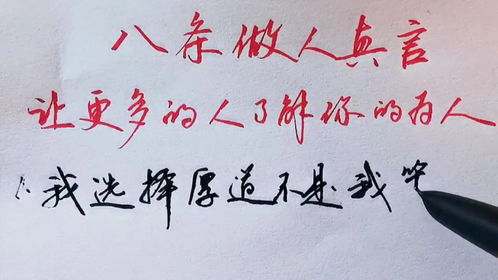 八条做人真言
让更多的人了解你的为人
1、我选择厚道不是我